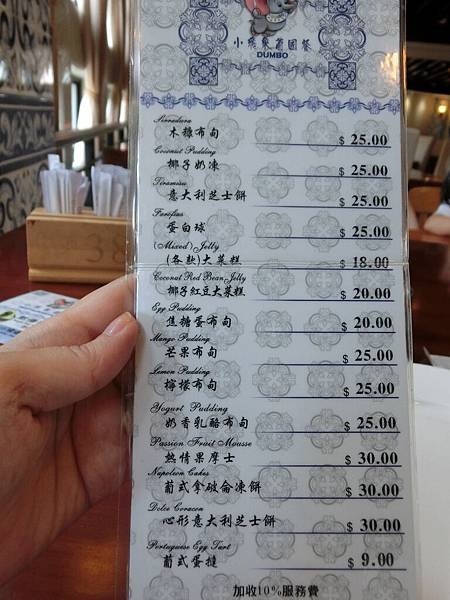 小飛象葡國餐
DUMBO
Serradura
木糠布甸 $ 25.00
Coconut Pudding
椰子奶凍 $ 25.00
Tiramisu
意大利芝士餅 $ 25.00
Farofias
蛋白球 $ 25.00
(Mixed) Jelly
(各款)大菜糕 $ 18.00
Coconut Red Bean Jelly
椰子紅豆大菜糕 $ 20.00
Egg Pudding
焦糖蛋布甸 $ 20.00
Mango Pudding
芒果布甸 $ 25.00
Lemon Pudding
檸檬布甸 $ 25.00
Yogurt Pudding
奶香乳酪布甸 $ 25.00
Passion Fruit Mousse
熱情果摩士 $ 30.00
Napoleon Cakes
葡式拿破侖凍餅 $ 30.00
Dolce Coracon
心形意大利芝士餅 $ 30.00
Portuguese Egg Tart
葡式蛋撻 $ 9.00
加收10%服務費